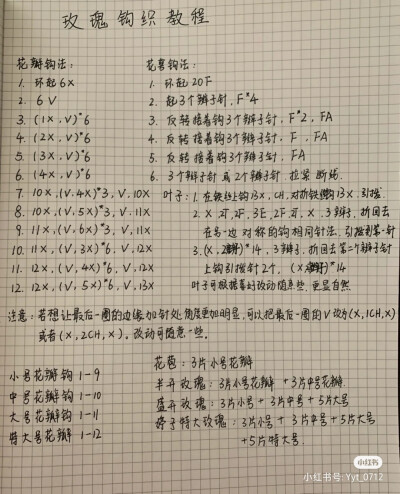 玫瑰钩织教程
花瓣钩法：
1. 环起6X
2. 6V
3. (1X,V)*6
4. (2X,V)*6
5. (3X,V)*6
6. (4X,V)*6
7. 10X,(V,4X)*3,V,10X
8. 10X,(V,5X)*3,V,11X
9. 11X,(V,6X)*3,V,11X
10. 11X,(V,3X)*6,V,12X
11. 12X,(V,4X)*6,V,12X
12. 12X,(V,5X)*6,V,13X
花萼钩法：
1. 环起20F
2. 起3个辫子针,F*4
3. 反转接着钩3个辫子针,F*2,FA
4. 反转接着钩3个辫子针,F,FA
5. 反转接着钩3个辫子针,FA
6. 3个辫子针,2个辫子针,拉紧断线
叶子：1. 在铁丝上钩13X,CH,对折铁丝钩13X,引拔
2. X,2T,2F,3E,2F,2T,X,3辫子,折回去
在另一边对称的钩相同针法,引拔到第一针
3. (X,)*14,3辫子,折回去第二个辫子针
上钩引拨针2个,(X,)*14
叶子可根据喜好改动随意些,更显自然
注意：若想让最后一圈的边缘加针处角度更加明显,可以把最后一圈的V改为(X,1CH,X)
或者(X,2CH,X),改动可随意一些。
小号花瓣钩1-9
中号花瓣钩1-10
大号花瓣钩1-11
特大号花瓣1-12
花苞：3片小号花瓣
半开玫瑰：3片小号花瓣+3片中号花瓣
盛开玫瑰：3片小号+3片中号+5片大号
特大玫瑰：3片小号+3片中号+5片大号
+5片特大号
小红书
小红书号:Yyt_0712